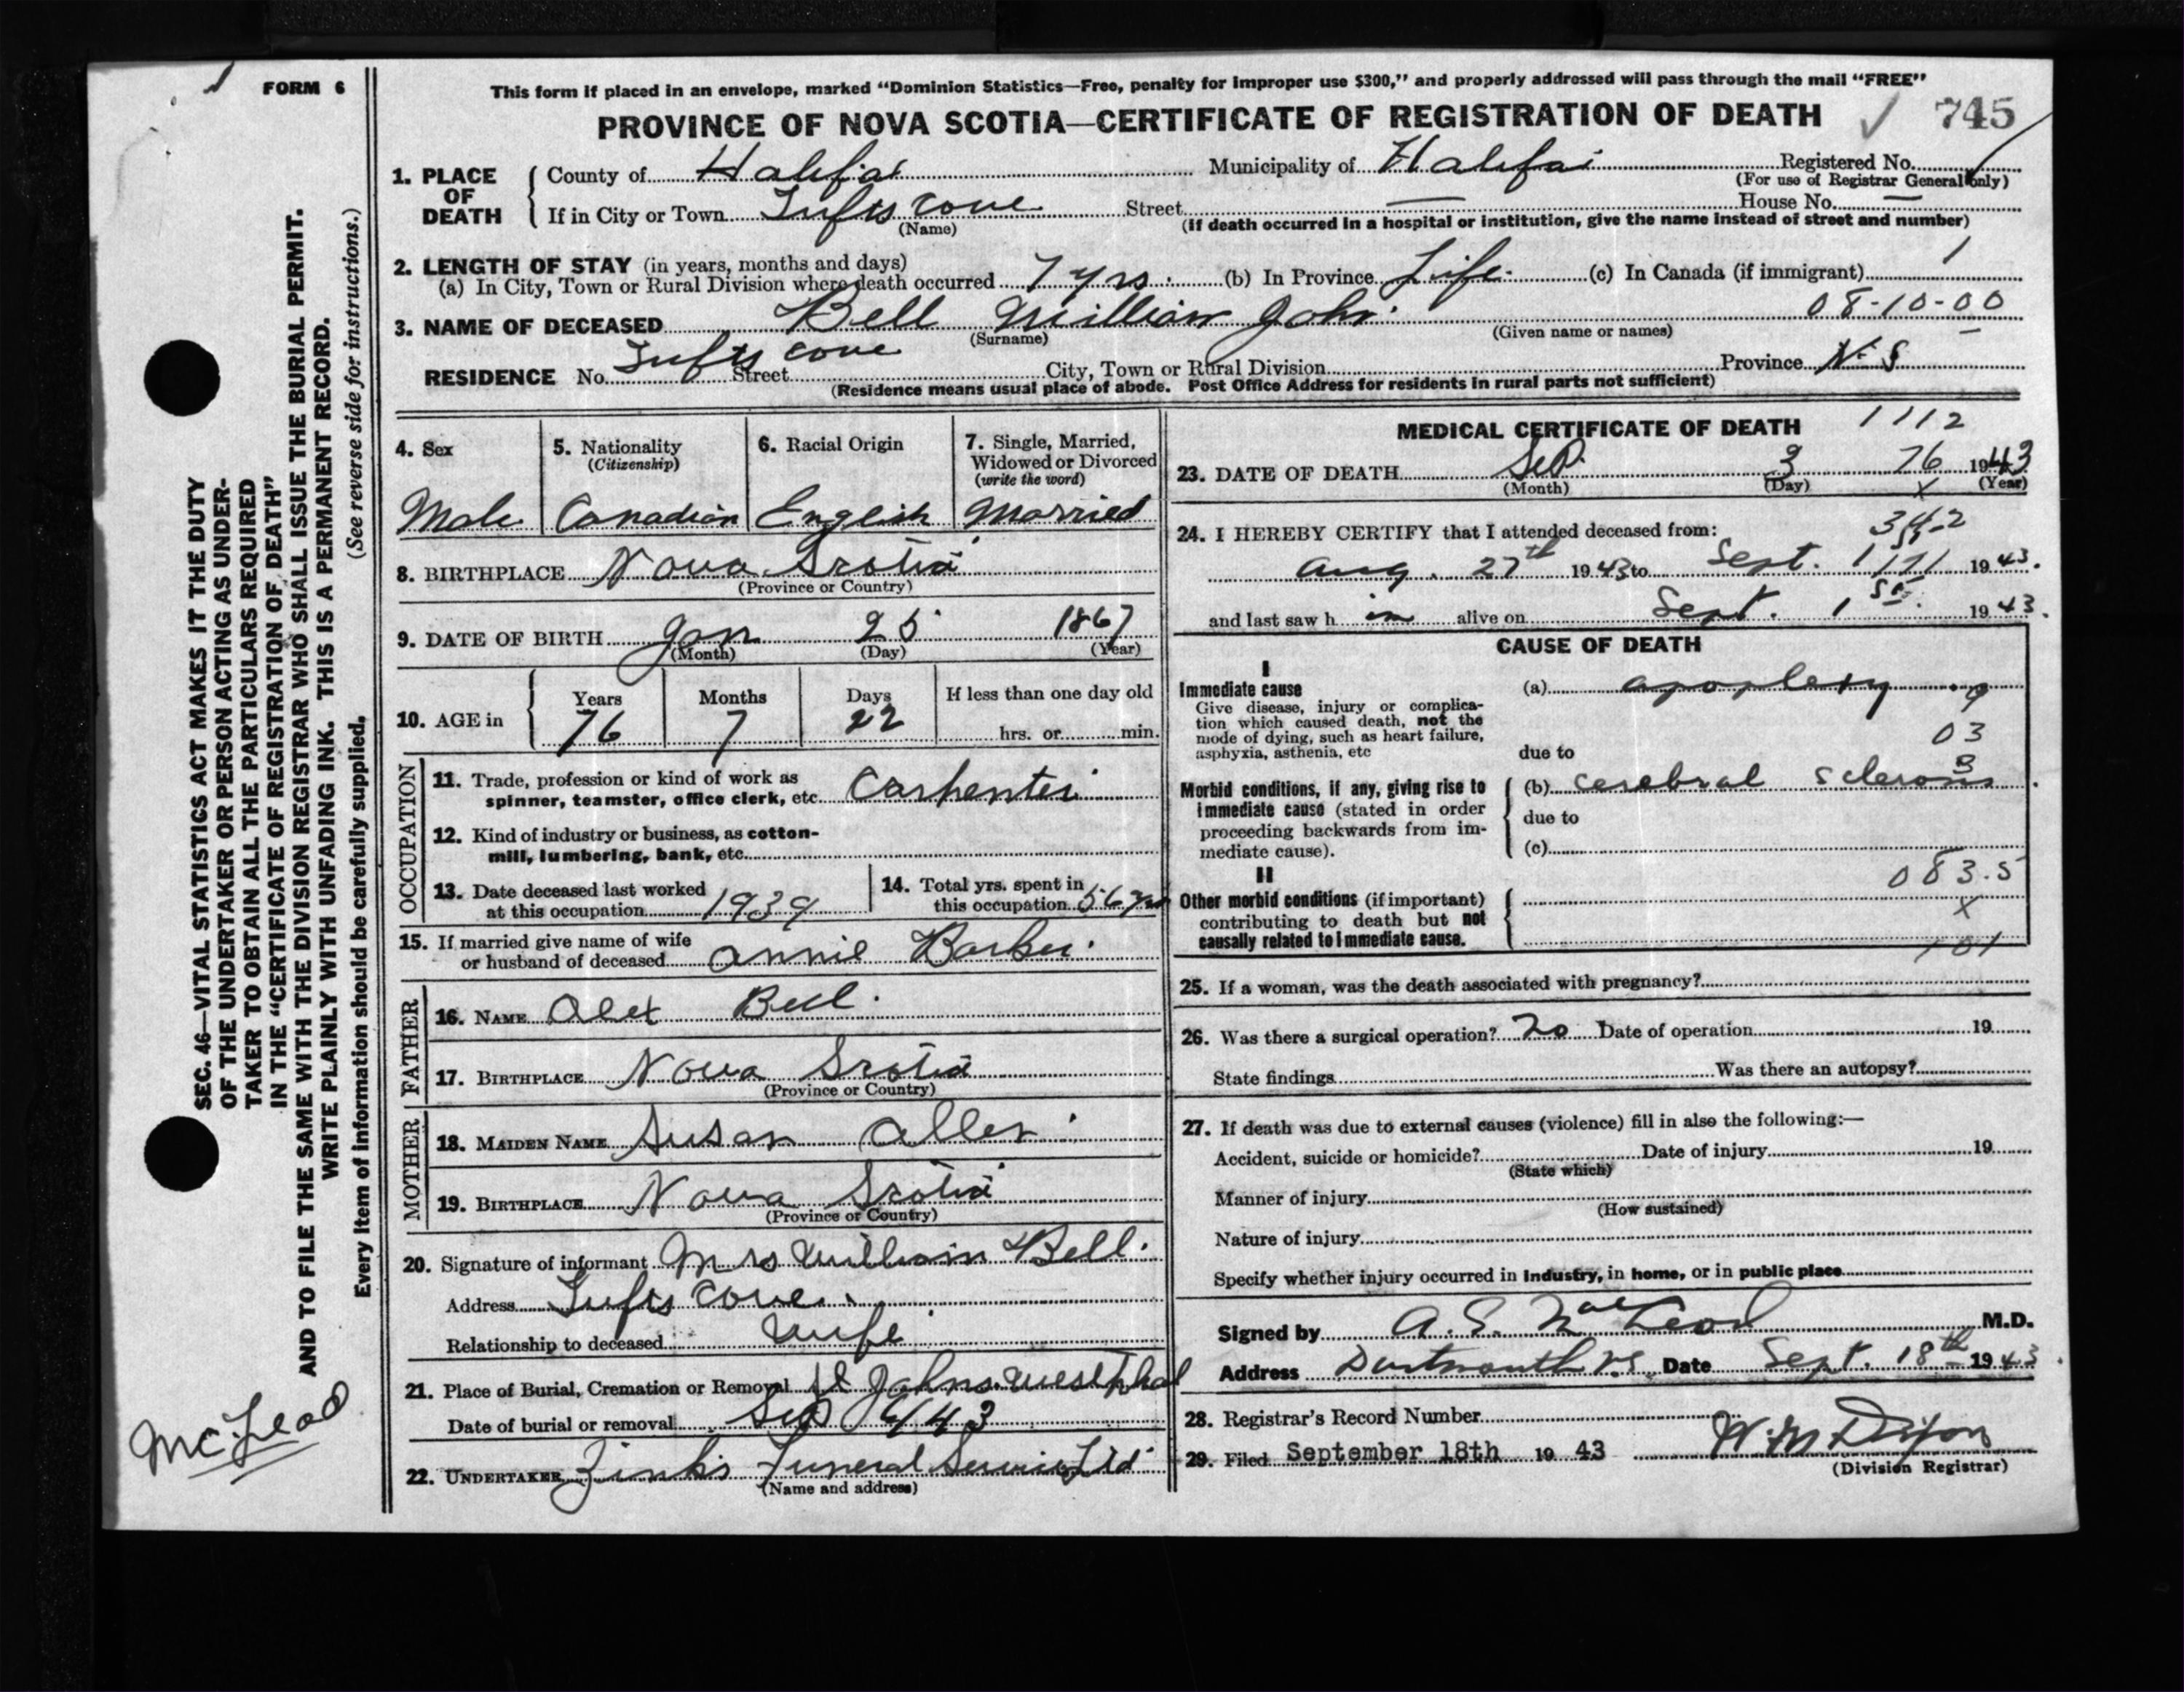 FORM 6
This form if placed in an envelope, marked “Dominion Statistics—Free, penalty for improper use $300,” and properly addressed will pass through the mail “FREE”
PROVINCE OF NOVA SCOTIA—CERTIFICATE OF REGISTRATION OF DEATH 745
SEC. 46—VITAL STATISTICS ACT MAKES IT THE DUTY
OF THE UNDERTAKER OR PERSON ACTING AS UNDER-
TAKER TO OBTAIN ALL THE PARTICULARS REQUIRED
IN THE “CERTIFICATE OF REGISTRATION OF DEATH”
AND TO FILE THE SAME WITH THE DIVISION REGISTRAR WHO SHALL ISSUE THE BURIAL PERMIT.
WRITE PLAINLY WITH UNFADING INK. THIS IS A PERMANENT RECORD.
Every item of information should be carefully supplied. (See reverse side for instructions.)
McLead
1. PLACE OF DEATH
County of Halifax Municipality of Halifax Registered No.
(For use of Registrar General only)
If in City or Town Tufts Cove Street — House No. —
(Name) (If death occurred in a hospital or institution, give the name instead of street and number)
2. LENGTH OF STAY (in years, months and days)
(a) In City, Town or Rural Division where death occurred 7 yrs. (b) In Province Life (c) In Canada (if immigrant)
08-10-00
3. NAME OF DECEASED Bell William John
(Surname) (Given name or names)
RESIDENCE No. Tufts Cove Street City, Town or Rural Division Province N-S
(Residence means usual place of abode. Post Office Address for residents in rural parts not sufficient)
4. Sex 5. Nationality 6. Racial Origin 7. Single, Married,
(Citizenship) Widowed or Divorced
(write the word)
Male Canadian English Married
8. BIRTHPLACE Nova Scotia
(Province or Country)
9. DATE OF BIRTH Jan 25 1867
(Month) (Day) (Year)
10. AGE in Years Months Days If less than one day old
76 7 22 hrs. or min.
OCCUPATION
11. Trade, profession or kind of work as
spinner, teamster, office clerk, etc. Carpenter
12. Kind of industry or business, as cotton-
mill, lumbering, bank, etc.
13. Date deceased last worked
at this occupation 1939
14. Total yrs. spent in
this occupation 56 yrs
15. If married give name of wife
or husband of deceased Annie Barker
FATHER
16. NAME Alex Bell
17. BIRTHPLACE Nova Scotia
(Province or Country)
MOTHER
18. MAIDEN NAME Susan Allen
19. BIRTHPLACE Nova Scotia
(Province or Country)
20. Signature of informant Mrs William Bell
Address Tufts Cove
Relationship to deceased wife
21. Place of Burial, Cremation or Removal St Johns. Westphal
Date of burial or removal Sep 43
22. UNDERTAKER Zink's Funeral Service Ltd
(Name and address)
MEDICAL CERTIFICATE OF DEATH 1112
23. DATE OF DEATH Sep. 3 76 1943
(Month) (Day) (Year)
24. I HEREBY CERTIFY that I attended deceased from: 342
Aug. 27th 1943 to Sept. 1st 1943.
and last saw him alive on Sept. 1st. 1943.
CAUSE OF DEATH
I
Immediate cause (a) apoplexy
Give disease, injury or complica-
tion which caused death, not the
mode of dying, such as heart failure, 03
asphyxia, asthenia, etc due to
Morbid conditions, if any, giving rise to (b) cerebral sclerosis
immediate cause (stated in order due to
proceeding backwards from im-
mediate cause). (c)
II 083.5
Other morbid conditions (if important) x
contributing to death but not
causally related to immediate cause. 101
25. If a woman, was the death associated with pregnancy?
26. Was there a surgical operation? no Date of operation 19
State findings Was there an autopsy?
27. If death was due to external causes (violence) fill in also the following:—
Accident, suicide or homicide? Date of injury 19
(State which)
Manner of injury
(How sustained)
Nature of injury
Specify whether injury occurred in industry, in home, or in public place
Signed by A. S. MacLeod M.D.
Address Dartmouth N.S. Date Sept. 18th 1943.
28. Registrar's Record Number
29. Filed September 18th 1943 W. M Dixon
(Division Registrar)